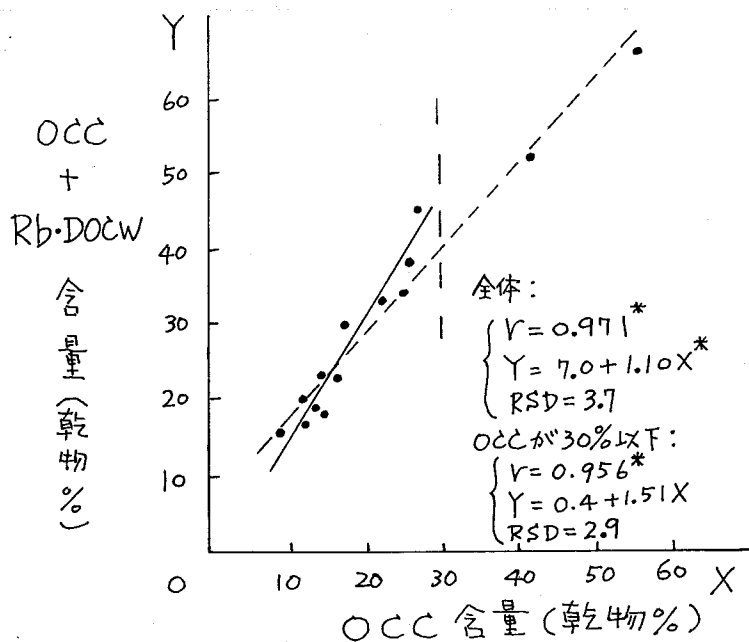 Y
OCC
+
Rb・DOCW
含量(乾物%)
60
50
40
30
20
10
0
10
20
30
40
50
60
X
OCC含量(乾物%)
全体:
r=0.971*
Y=7.0+1.10X*
RSD=3.7
OCCが30%以下:
r=0.956*
Y=0.4+1.51X
RSD=2.9